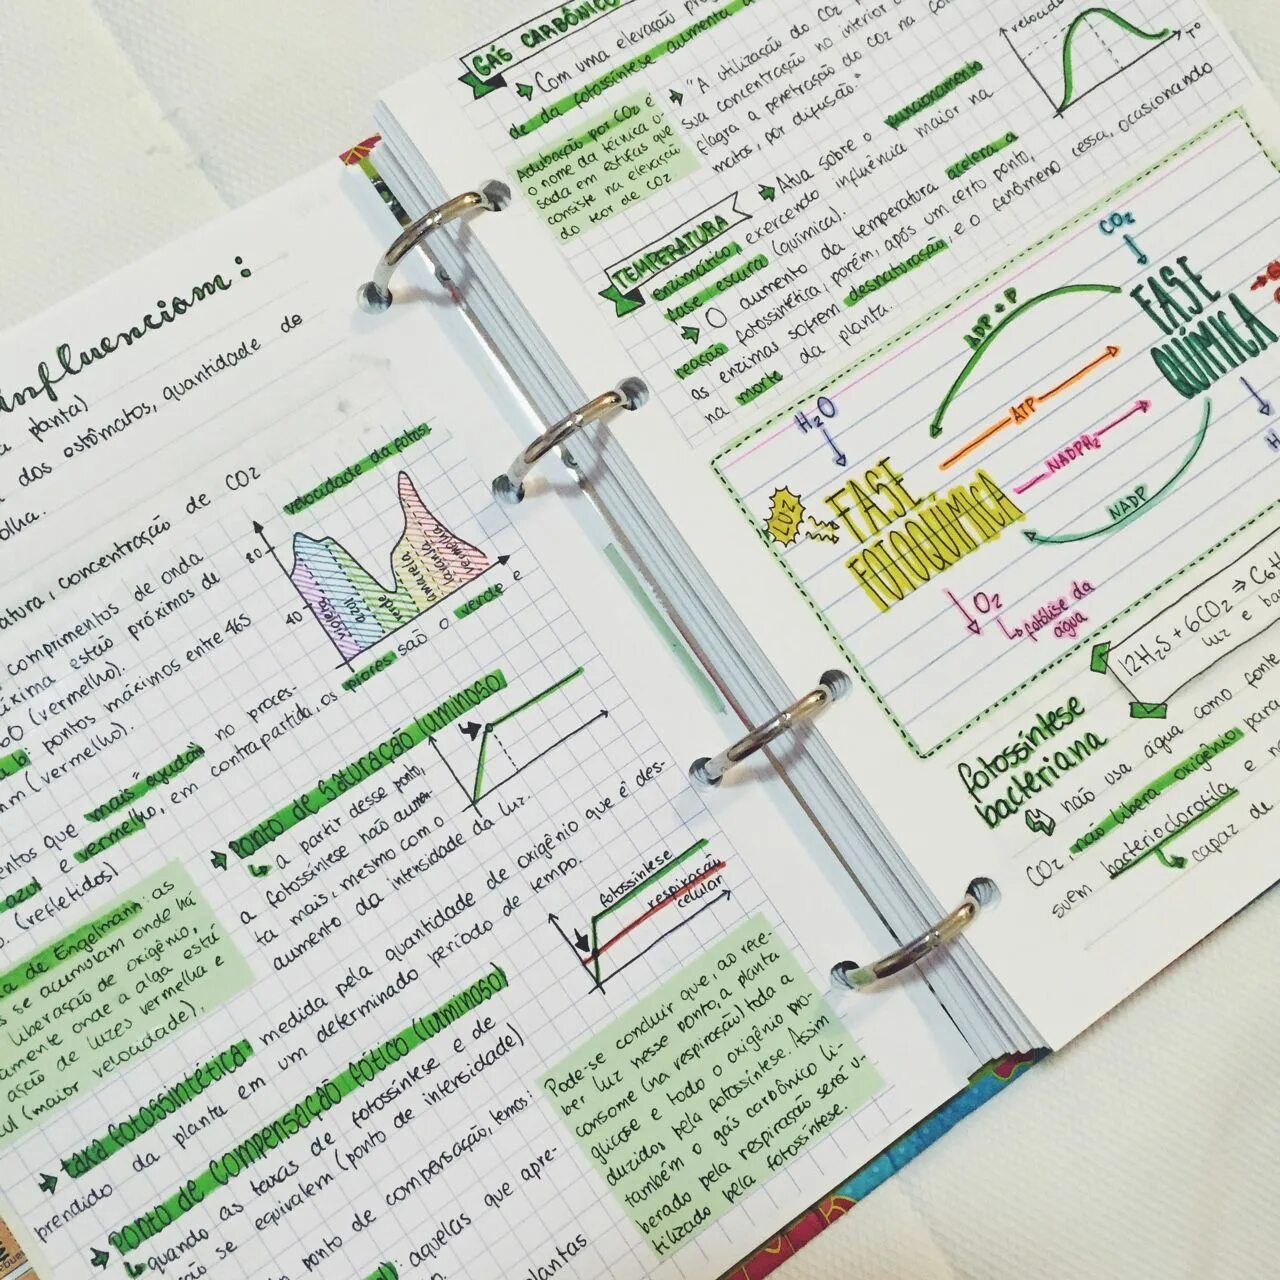 influenciam:
a planta)
dos ostômatos, quantidade de
olha.
atura, concentração de CO2
comprimentos de onda
áxima estão próximos de
60 (vermelho).
a b: pontos máximos entre 465
nm (vermelho).
entos que "mais ajudam" no proces-
azul e vermelho, em contrapartida, os piores são o verde e
o. (refletidos)
velocidade da fotos.
80
40
violeta
azul
verde
amarela
laranja
vermelha
a de Engelmann: as
s se acumulam onde há
liberação de oxigênio,
amente onde a alga está
ação de luzes vermelha e
ul (maior velocidade).
Ponto de Saturação luminoso
a partir desse ponto,
a fotossíntese não aumen-
ta mais, mesmo com o
aumento da intensidade da luz.
taxa fotossintética: medida pela quantidade de oxigênio que é des-
prendido da planta em um determinado período de tempo.
Ponto de compensação fótico (luminoso)
quando as taxas de fotossíntese e de
ação se equivalem (ponto de intensidade)
ponto de compensação, temos:
: aquelas que apre-
plantas
fotossíntese
respiração
celular
Pode-se concluir que, ao rece-
ber luz nesse ponto, a planta
consome (na respiração) toda a
glicose e todo o oxigênio pro-
duzidos pela fotossíntese. Assim
também o gás carbônico li-
berado pela respiração será u-
tilizado pela fotossíntese.
GÁS CARBÔNICO
Com uma elevação
de da fotossíntese aumenta
Adubação por CO2 é
o nome da técnica u-
sada em estufas que
consiste na elevação
do teor de CO2
"A utilização do CO2
sua concentração no interior
flagra a penetração do CO2 na
matos, por difusão."
velocida
Tº
TEMPERATURA
Atua sobre o funcionamento
enzimático, exercendo influência maior na
fase escura (química).
O aumento da temperatura acelera a
reação fotossintética, porém, após um certo ponto,
as enzimas sofrem desnaturação, e o fenômeno cessa, ocasionando
na morte da planta.
CO2
FASE
QUÍMICA
ADP + P
ATP
NADPH2
NADP
H2O
LUZ
FASE
FOTOQUÍMICA
O2
fotólise da
água
H
12H2S + 6CO2 ⇒ C6H
luz e ba
fotossíntese
bacteriana
não usa água como fonte
CO2, não libera oxigênio, para
suem bacterioclorofila e n
capaz de